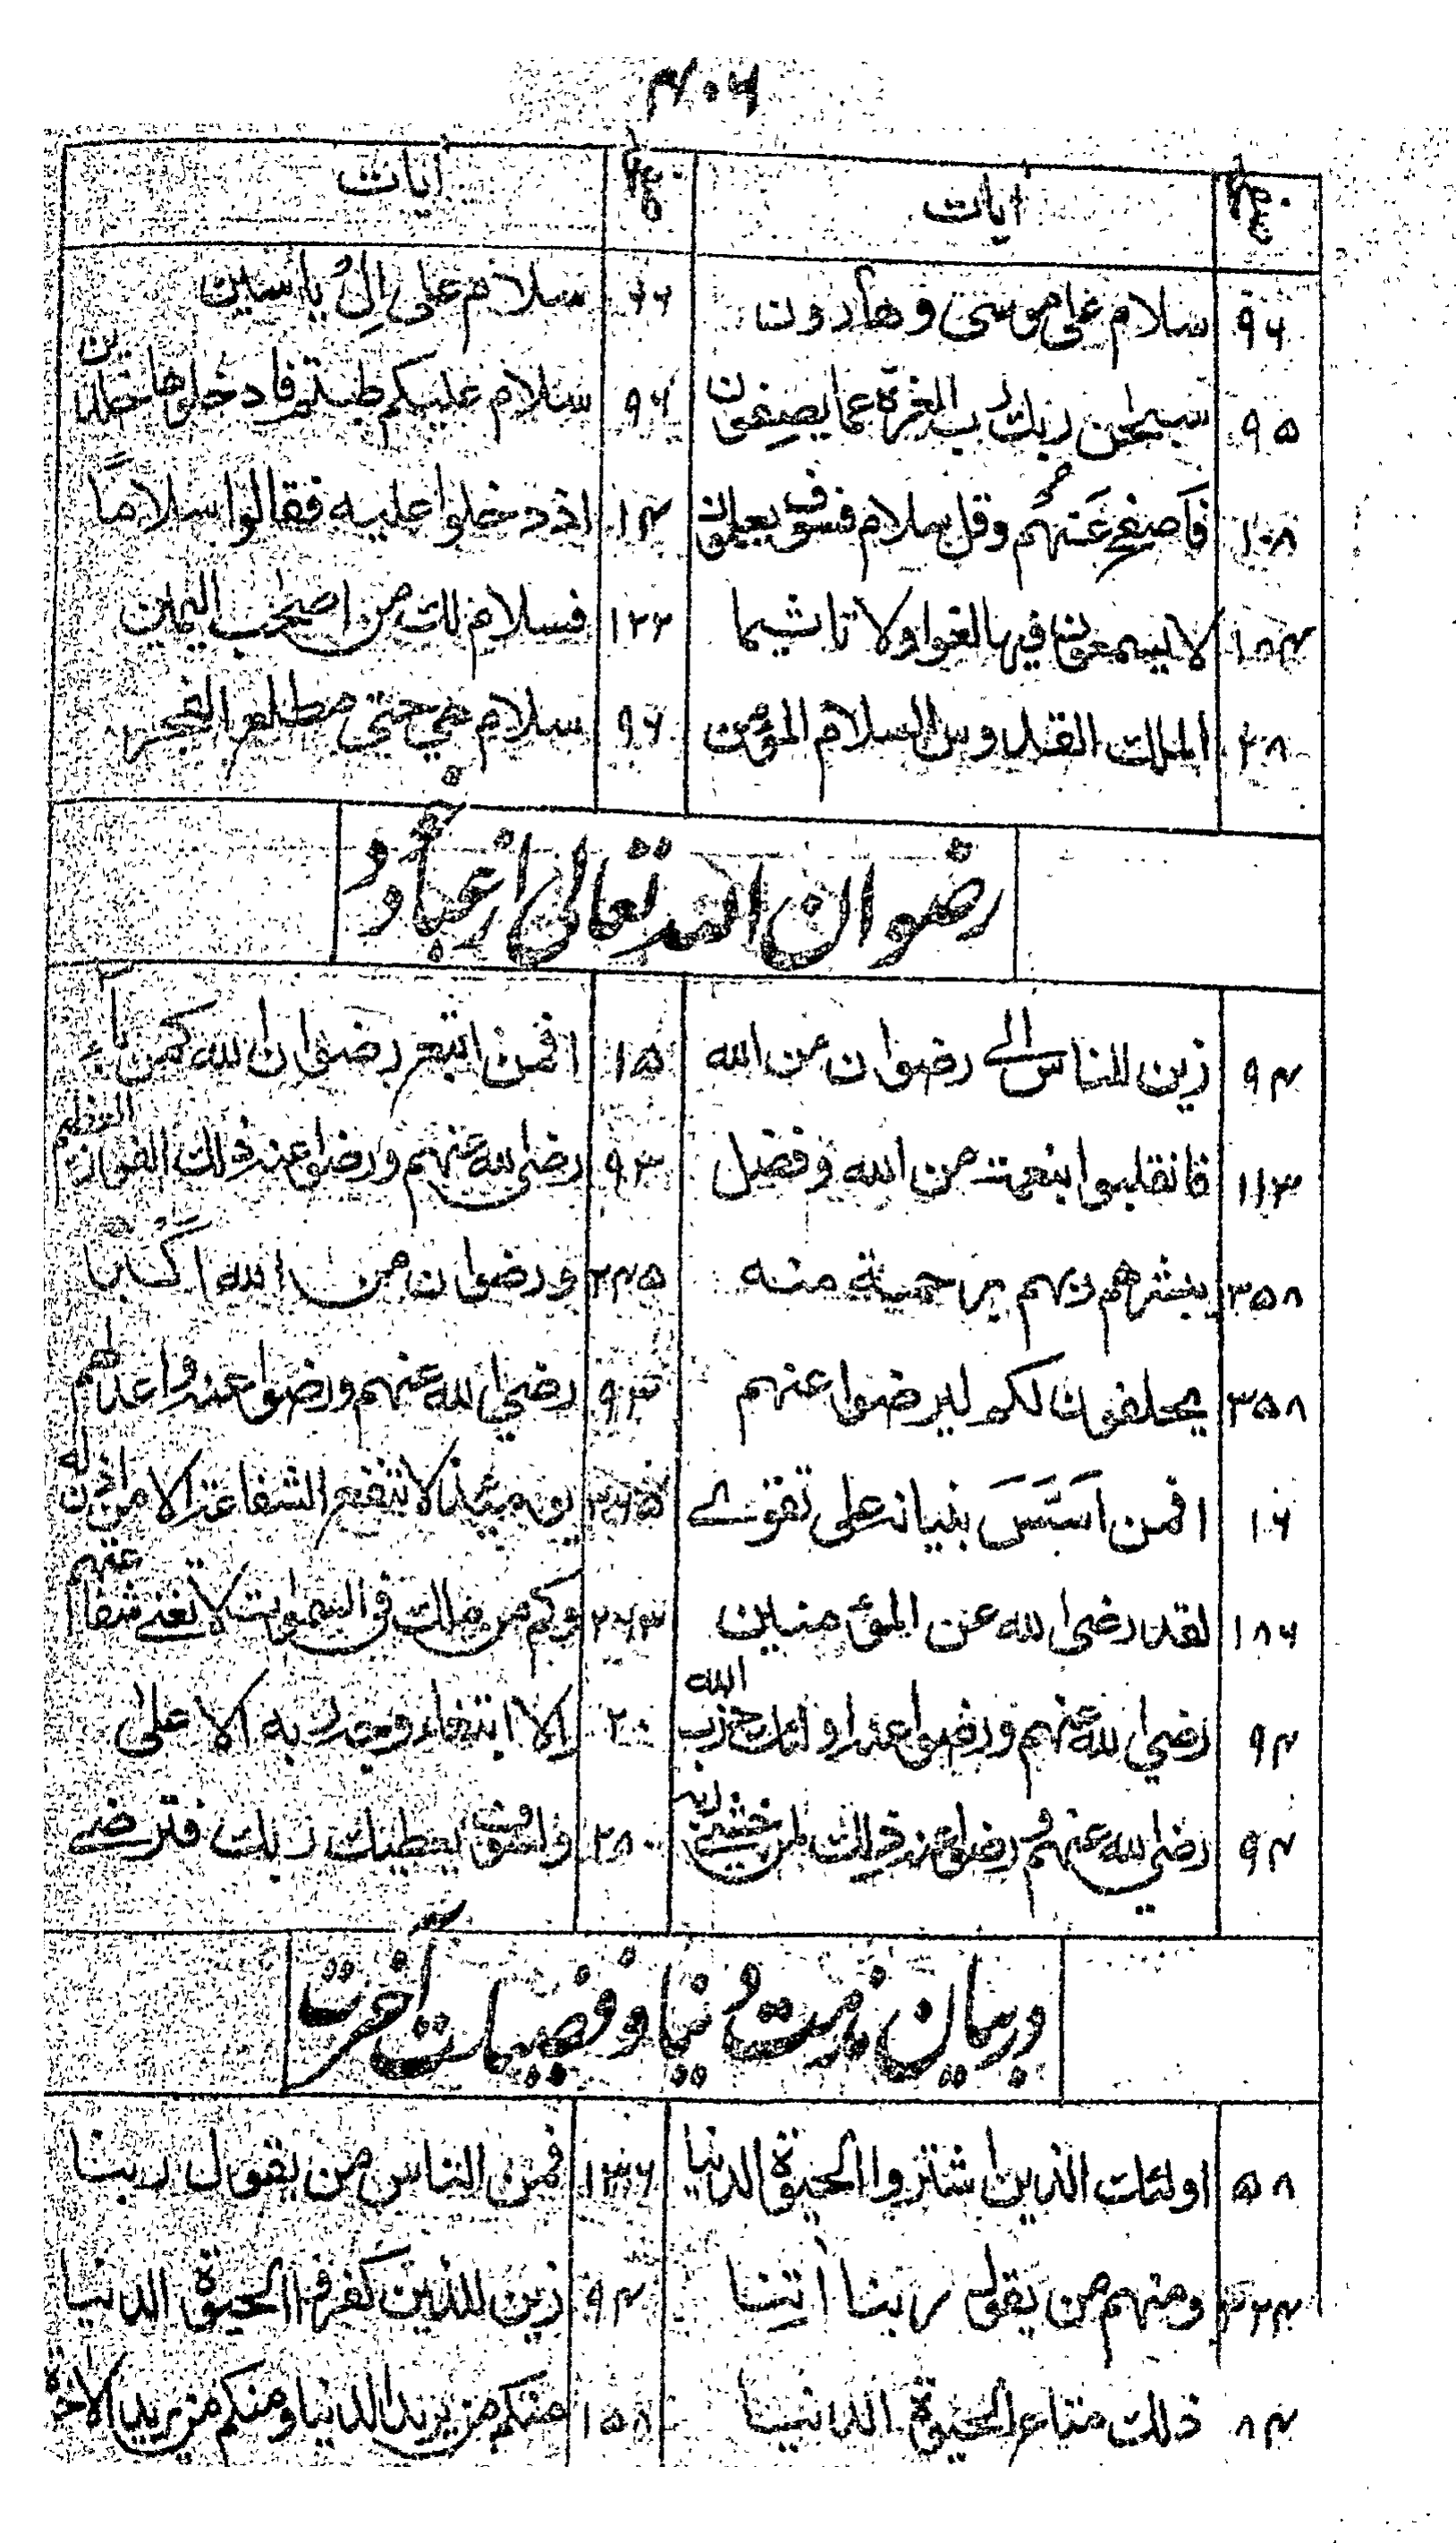 ۴۰۶
آیات
آیات
۹۶ سلام علی موسی و هارون
۹۶ سلام علی اِل یاسین
۹۵ سبحٰن ربك رب العزة عما یصفون
۹۶ سلام علیکم طبتم فادخلوها خلدین
۱۰۸ فَاصفح عَنهُم وقل سلام فسوف یعلمون
۱۴ اذ دخلوا علیه فقالوا سلامًا
۱۸۴ لا یسمعون فیها لغوا ولا تاثیما
۱۲۳ فسلام لك من اصحٰب الیمین
۲۸ الملك القدوس السلام المؤمن
۹۶ سلام هی حتی مطلع الفجر
رضوان اللہ تعالی از عباد
۹۴ زین للناس الے رضوان من الله
۱۵ افمن اتبع رضوان الله کمن بآء
۱۱۳ فانقلبوا بنعمت من الله وفضل
۹۳ رضی الله عنهم ورضوا عنه ذلك الفوز العظیم
۳۵۸ یبشرهم ربهم برحمة منه
۲۴۵ ورضوان من الله اکبر
۳۵۸ یحلفون لکم لیرضوا عنهم
۹۳ رضی الله عنهم ورضوا عنه واعد لهم
۱۰۶ افمن اَسَّسَ بنیانه علی تقوے
یومئذ لا تنفع الشفاعة الا من اذن له
۱۸۶ لقد رضی الله عن المؤمنین
۲۶۳ وکم من ملك فی السموٰت لا تغنے شفاعتهم
۹۴ رضی الله عنهم ورضوا عنه اولئك حزب الله
۲۰ الا ابتغاء وجه ربه الاعلی
۹۴ رضی الله عنهم ورضوا عنه ذلك لمن خشی ربه
۲۸۰ ولسوف یعطیك ربك فترضے
در بیان مذمت دنیا و فضیلت آخرت
۵۸ اولئك الذین اشتروا الحیوة الدنیا
۱۳۶ فمن الناس من یقول ربنا
ومنهم من یقول ربنا اٰتنا
۹۴ زین للذین کفروا الحیوة الدنیا
۸۴ ذلك متاع الحیوة الدنیا
۱۵۸ منکم من یرید الدنیا ومنکم من یرید الاخرة